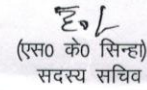 (एस0 के0 सिन्हा)
सदस्य सचिव